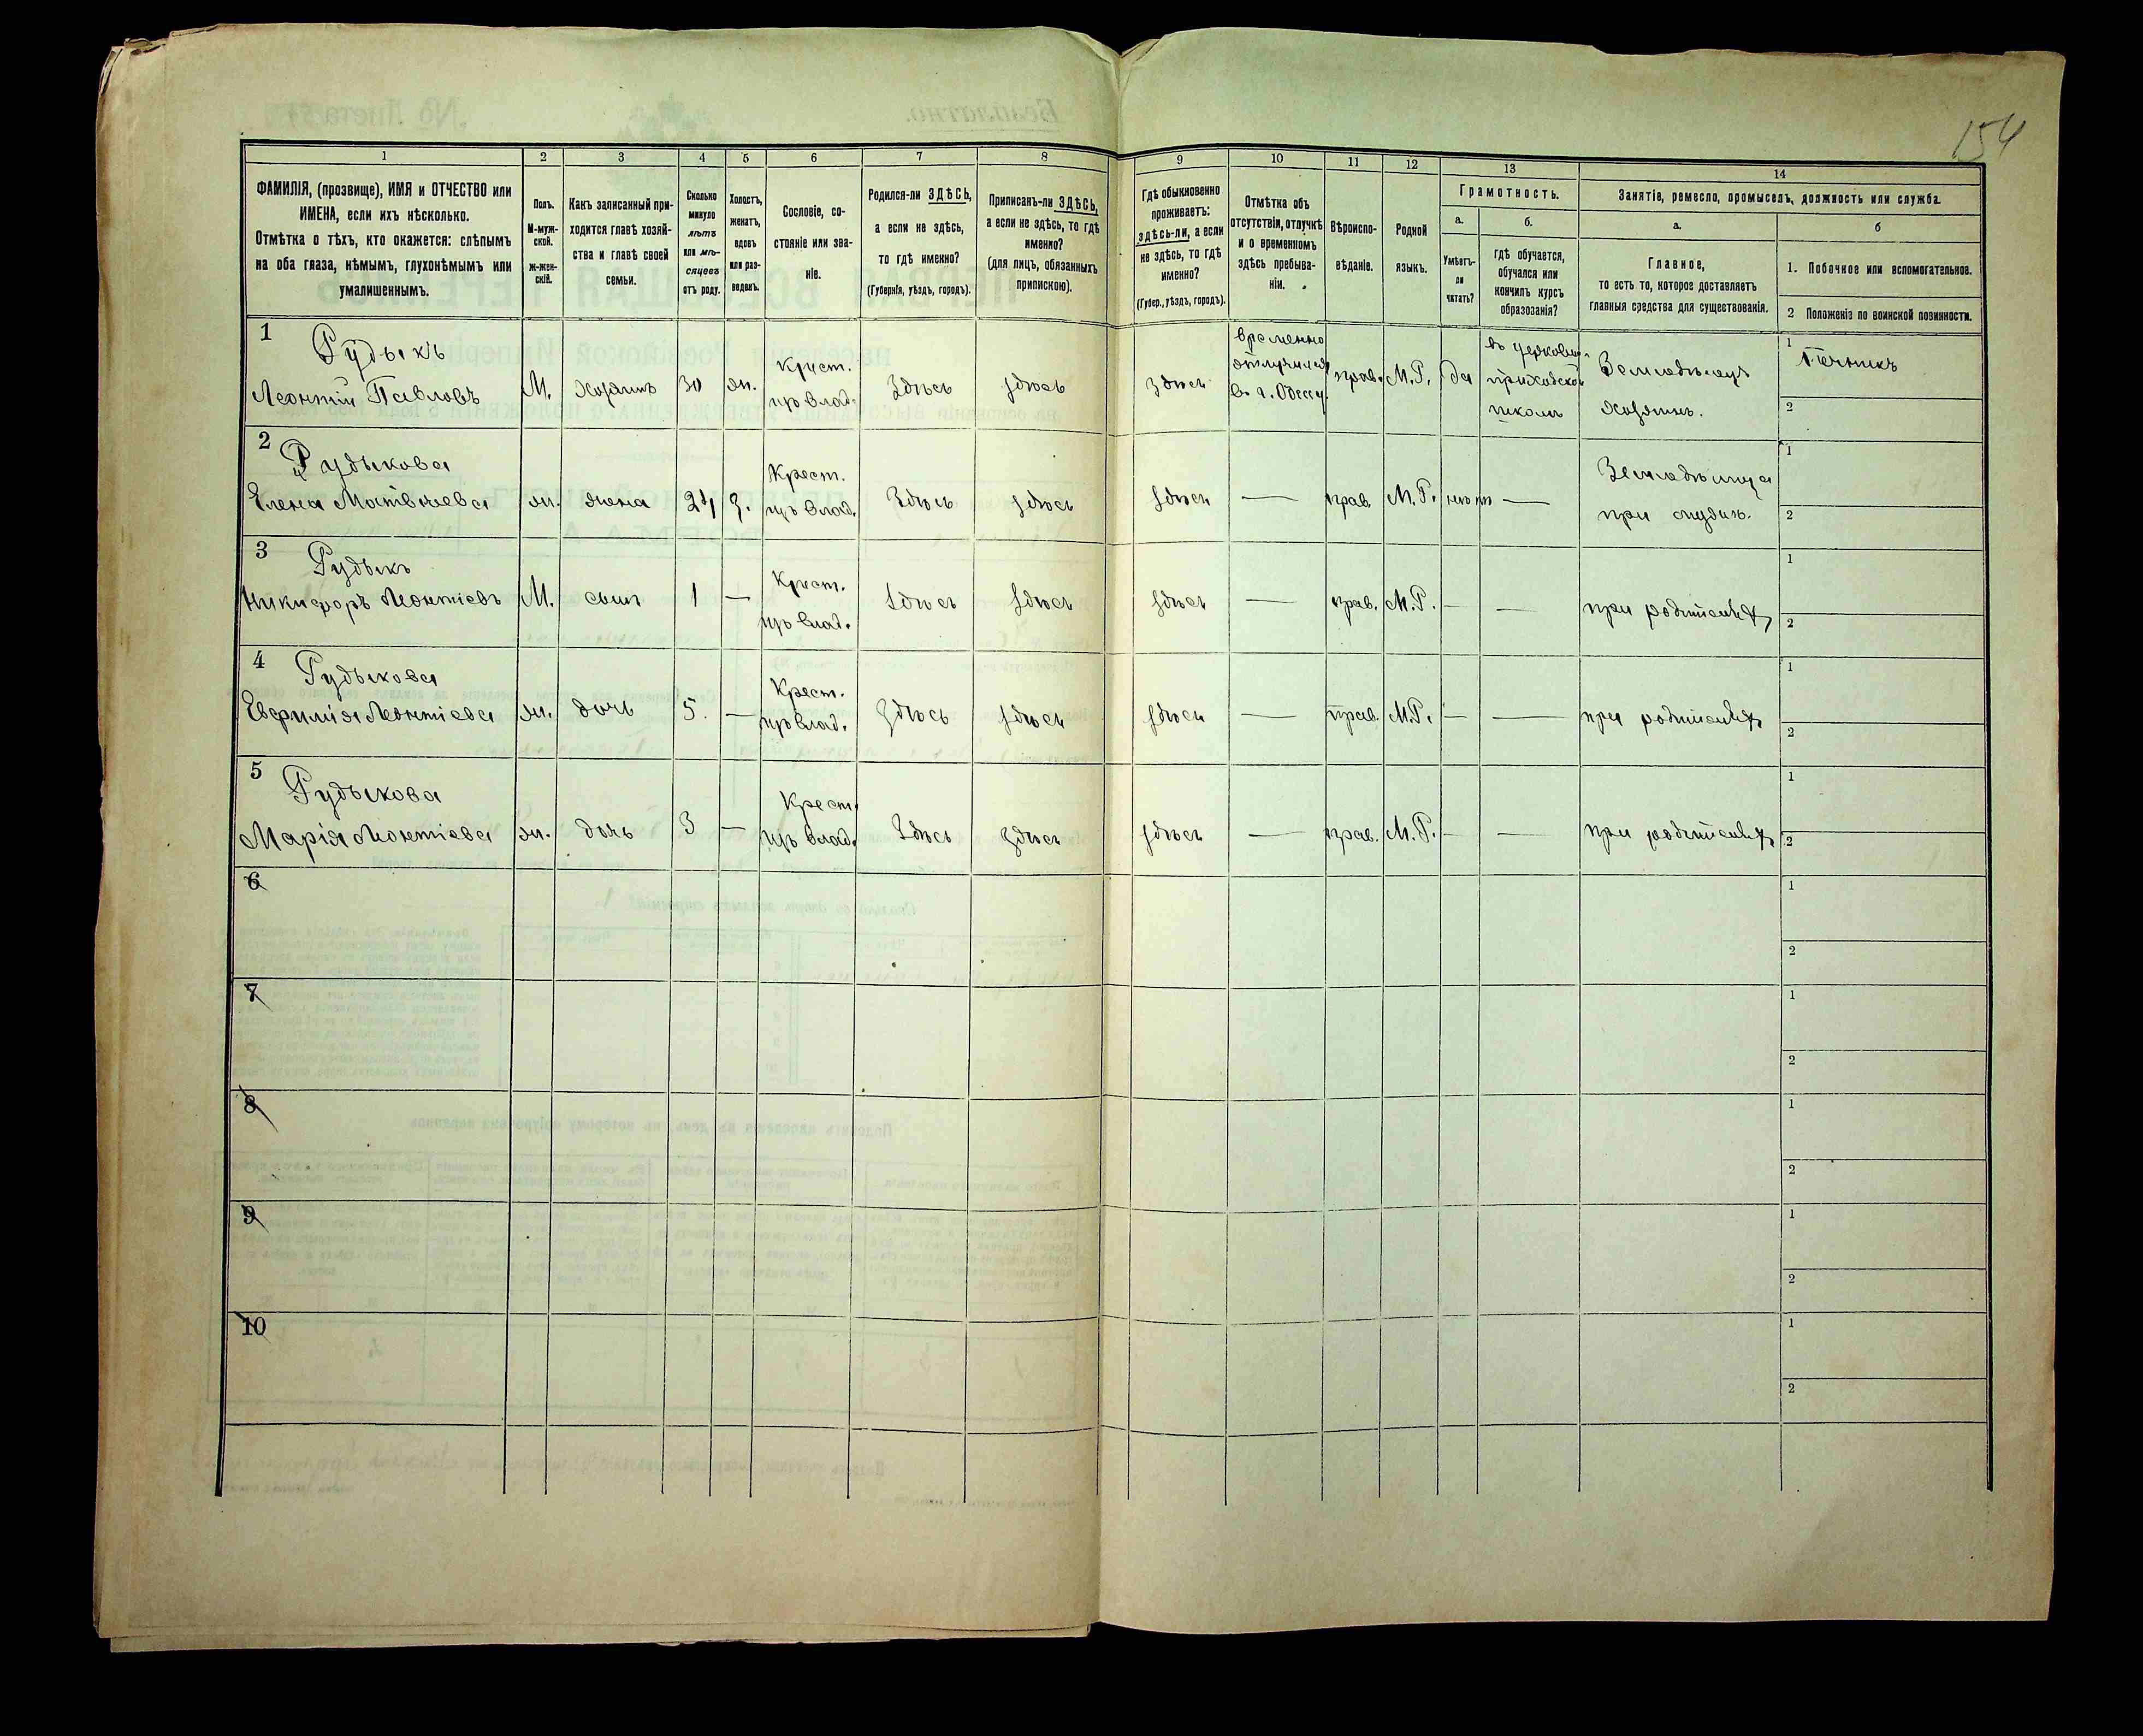 154
1 2 3 4 5 6 7 8 9 10 11 12 13 14
ФАМИЛІЯ, (прозвище), ИМЯ и ОТЧЕСТВО или
ИМЕНА, если ихъ нѣсколько.
Отмѣтка о тѣхъ, кто окажется: слѣпымъ
на оба глаза, нѣмымъ, глухонѣмымъ или
умалишеннымъ.
Полъ.
М-муж-
ской.
Ж-жен-
скій.
Какъ записанный при-
ходится главѣ хозяй-
ства и главѣ своей
семьи.
Сколько
минуло
лѣтъ
или мѣ-
сяцевъ
отъ роду.
Холостъ,
женатъ,
вдовъ
или раз-
веденъ.
Сословіе, со-
стояніе или зва-
ніе.
Родился-ли ЗДѢСЬ,
а если не здѣсь,
то гдѣ именно?
(Губернія, уѣздъ, городъ).
Приписанъ-ли ЗДѢСЬ,
а если не здѣсь, то гдѣ
именно?
(для лицъ, обязанныхъ
припискою).
Гдѣ обыкновенно
проживаетъ:
здѣсь-ли, а если
не здѣсь, то гдѣ
именно?
(Губер., уѣздъ, городъ).
Отмѣтка объ
отсутствіи, отлучкѣ
и о временномъ
здѣсь пребыва-
ніи.
Вѣроиспо-
вѣданіе.
Родной
языкъ.
Грамотность.
а.
Умѣетъ-
ли
читать?
б.
гдѣ обучается,
обучался или
кончилъ курсъ
образованія?
Занятіе, ремесло, промыселъ, должность или служба.
а.
Главное,
то есть то, которое доставляетъ
главныя средства для существованія.
б
1. Побочное или вспомогательное.
2 Положеніе по воинской повинности.
1
Рудыкъ
Леонтій Павловъ
М.
Хозяинъ
30
ж.
Крест.
изъ влад.
Здѣсь
здѣсь
здѣсь
временно
отлучился
в г. Одессу
прав.
М.Р.
да
въ церковно-
приходской
школѣ
Земледѣлецъ
хозяинъ.
1 Печникъ
2
2
Рудыкова
Елена Матвѣева
ж.
жена
24
з.
Крест.
изъ влад.
Здѣсь
здѣсь
здѣсь
—
прав.
М.Р.
нѣтъ
—
Земледѣлица
при
1
2
3
Рудыкъ
Никифоръ Леонтіевъ
М.
сынъ
1
—
Крест.
изъ влад.
здѣсь
здѣсь
здѣсь
—
прав.
М.Р.
—
—
при родителяхъ
1
2
4
Рудыкова
Евфимія Леонтіева
ж.
дочь
5.
—
Крест.
изъ влад.
Здѣсь
здѣсь
здѣсь
—
прав.
М.Р.
—
—
при родителяхъ
1
2
5
Рудыкова
Марія Леонтіева
ж.
дочь
3
—
Крест
изъ влад.
Здѣсь
здѣсь
здѣсь
—
прав.
М.Р.
—
—
при родителяхъ
1
2
6
1
2
7
1
2
8
1
2
9
1
2
10
1
2